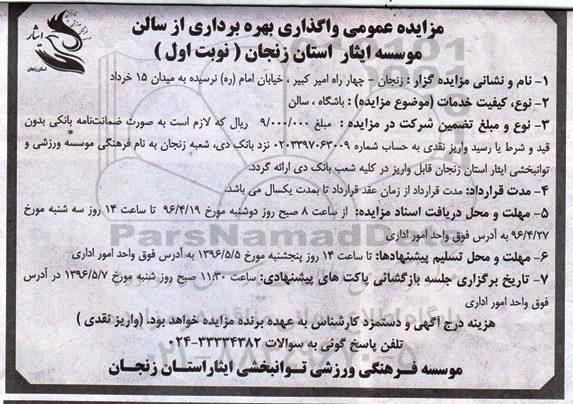 مزایده عمومی واگذاری بهره برداری از سالن
موسسه ایثار استان زنجان ( نوبت اول )
ایثار
استان زنجان
۱- نام و نشانی مزایده گزار : زنجان - چهار راه امیر کبیر ، خیابان امام (ره) نرسیده به میدان ۱۵ خرداد
۲- نوع، کیفیت خدمات (موضوع مزایده) : باشگاه ، سالن
۳- نوع و مبلغ تضمین شرکت در مزایده : مبلغ ۹/۰۰۰/۰۰۰ ریال که لازم است به صورت ضمانت‌نامه بانکی بدون
قید و شرط یا رسید واریز نقدی به حساب شماره ۰۲۰۳۳۹۷۰۶۳۰۰۹ نزد بانک دی، شعبه زنجان به نام فرهنگی موسسه ورزشی و
توانبخشی ایثار استان زنجان قابل واریز در کلیه شعب بانک دی ارائه گردد.
۴- مدت قرارداد: مدت قرارداد از زمان عقد قرارداد تا بمدت یکسال می باشد.
۵- مهلت و محل دریافت اسناد مزایده: از ساعت ۸ صبح روز دوشنبه مورخ ۹۶/۴/۱۹ تا ساعت ۱۴ روز سه شنبه مورخ
۹۶/۴/۲۷ به آدرس فوق واحد امور اداری
۶- مهلت و محل تسلیم پیشنهادها: تا ساعت ۱۴ روز پنجشنبه مورخ ۱۳۹۶/۵/۵ به آدرس فوق واحد امور اداری
۷- تاریخ برگزاری جلسه بازگشائی پاکت های پیشنهادی: ساعت ۱۱:۳۰ صبح روز شنبه مورخ ۱۳۹۶/۵/۷ در آدرس
فوق واحد امور اداری
هزینه درج آگهی و دستمزد کارشناس به عهده برنده مزایده خواهد بود. (واریز نقدی )
تلفن پاسخ گوئی به سوالات ۳۳۳۳۴۳۸۲-۰۲۴
موسسه فرهنگی ورزشی توانبخشی ایثار استان زنجان
ParsNamadData